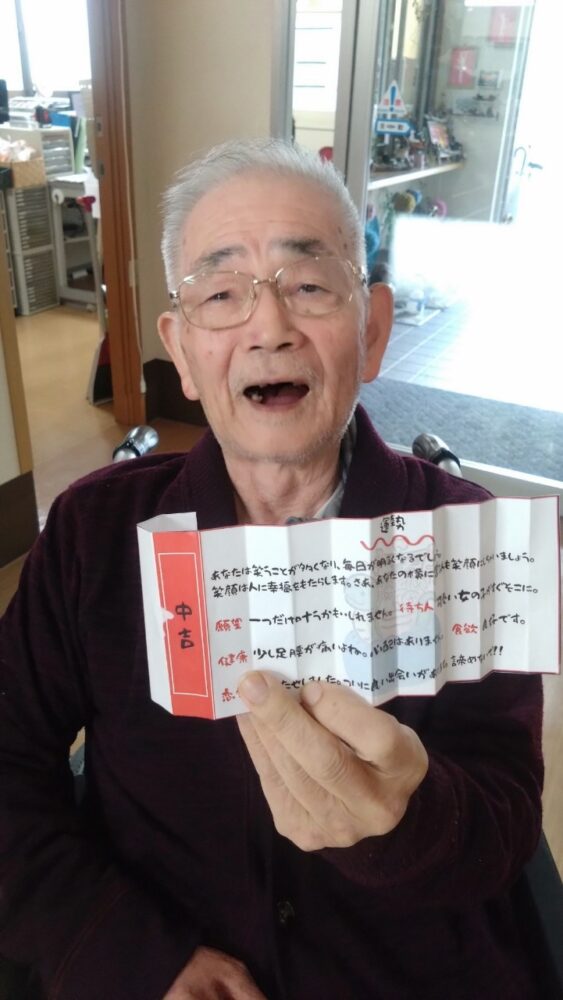 中吉
運勢
あなたは笑うことが多くなり、毎日が明るくなるでしょう。
笑顔は人に幸福をもたらします。さあ、あなたの も笑顔に いましょう。
願望 一つだけ叶うかもしれません。 待ち人 女の がすぐそこに。
健康 少し足腰が痛いよね。心配はありません。 食欲 です。
恋 たせしました。ついに良い出会いが 諦めないで!!